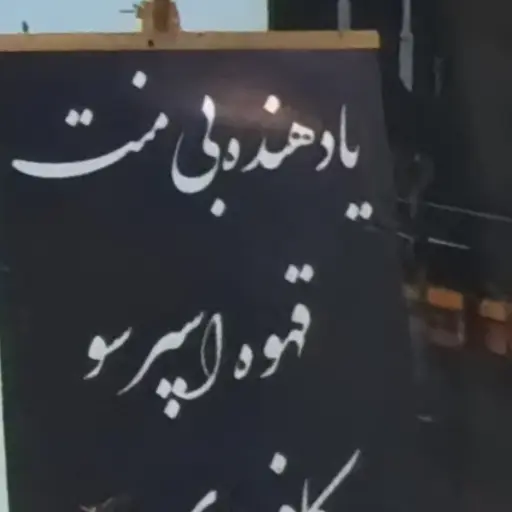 یا دهنده بی منت
قهوه اسپرسو